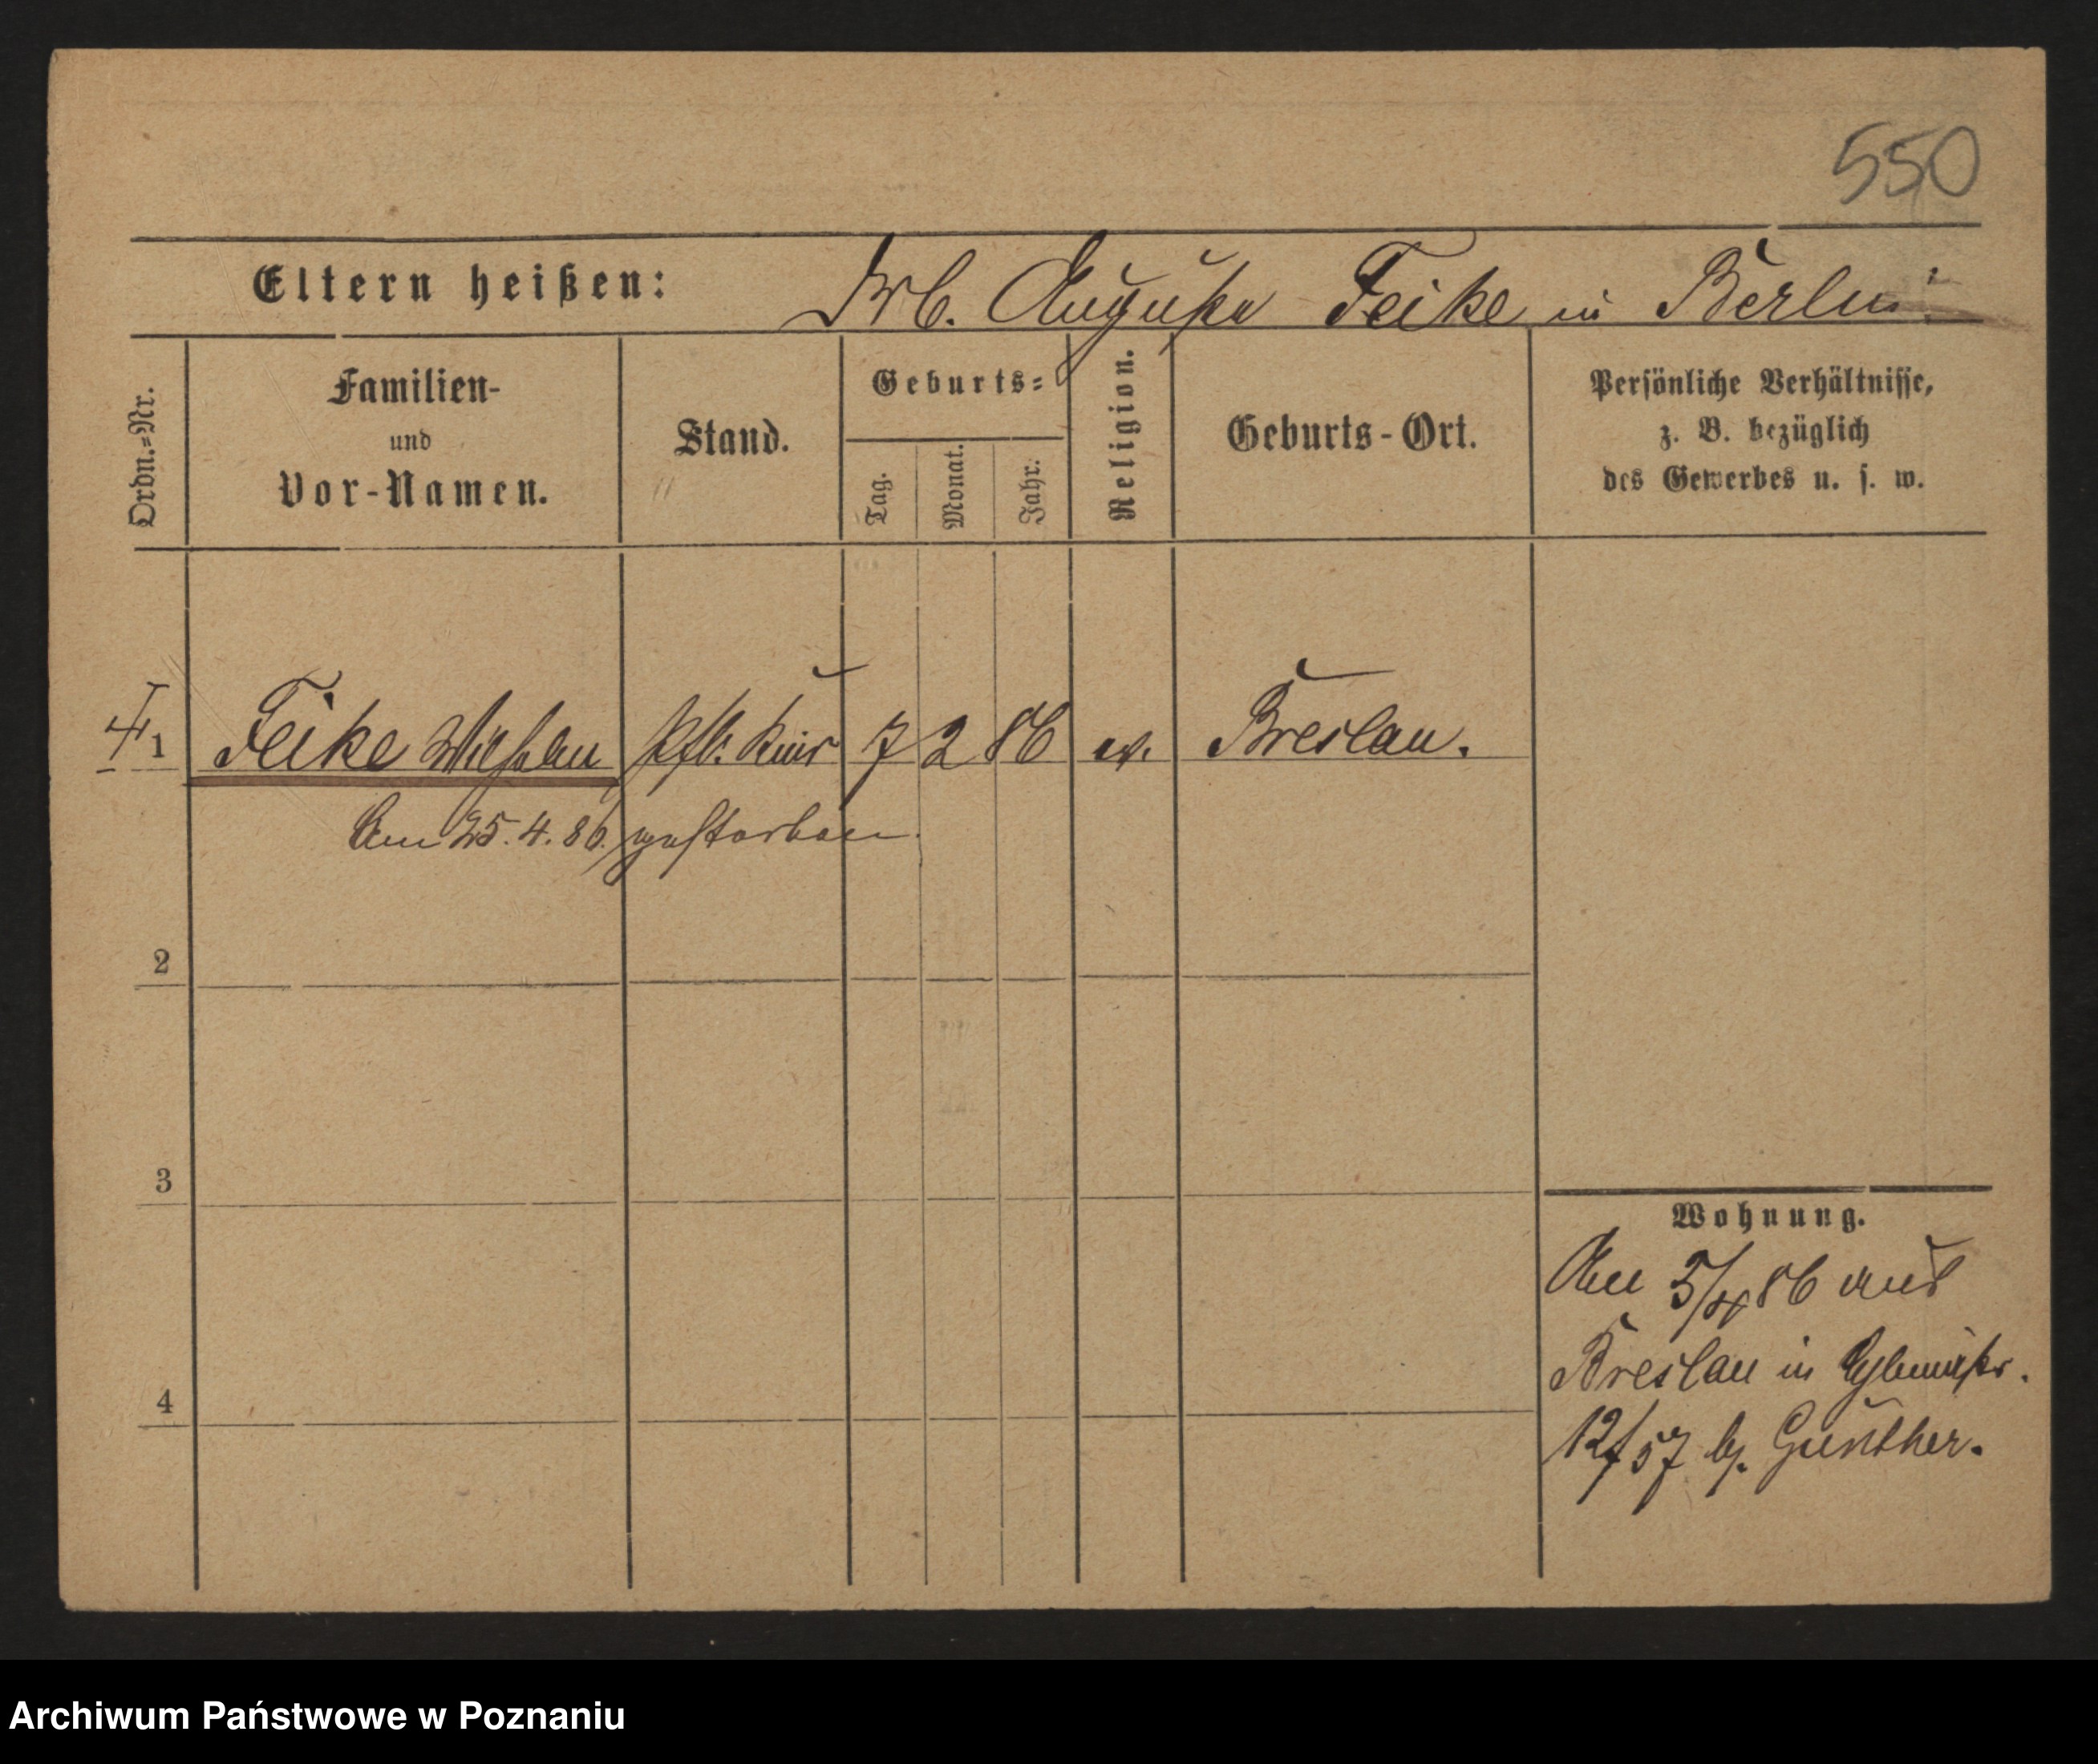 550
Eltern heißen: Aug Feike in Berlin
Ordn.=Nr.
Familien-
und
Vor-Namen.
Stand.
Geburts=
Tag.
Monat.
Jahr.
Religion.
Geburts-Ort.
Persönliche Verhältnisse,
z. B. bezüglich
des Gewerbes u. s. w.
1 Feike 7 2 86 ev. Breslau.
Am 25. 4. 86. gestorben.
2
3
4
Wohnung.
Am 5/4 86 aus
Breslau in
12/57 b. Günther.
Archiwum Państwowe w Poznaniu